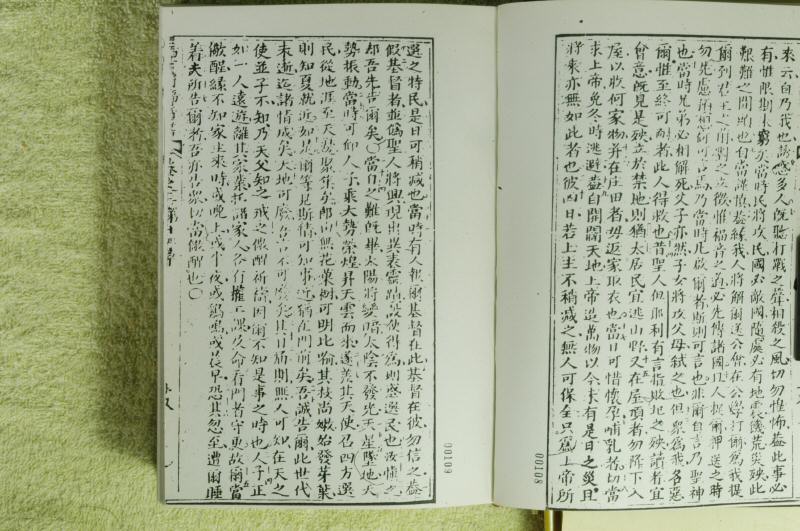 來云自乃我也誘惑多人既聽打戰之聲相殺之風切勿惟怖蓋此事必
有惟限期未窮矣當時民將攻民國必敵國隨處必有地震饑荒災殃此
艱難之間始也自當謹慎蓋緣我人將解爾送公會在公學打爾為我提
爾到君王之前對之立徵惟福音之道必先傳諸國且人捉爾押送之時
勿先慮預想何可言焉乃當時凡啟爾者斯則可言也非爾自言乃聖神
也當時兄弟必相解死父子亦然子女將攻父母弒之也但眾為我名惡
爾惟至終可耐者此人得救也昔聖人但耶利有言指敗圮之殃讀者宜
會意既見是殃立於禁地則猶太居民宜逃山野又在屋頭者勿降下入
屋以收何家物并在庄田者毋返家取衣也當日可惜懷孕哺乳者切當
求上帝免冬時逃避蓋自開闢天地上帝造萬物以今未有是日之災且
將來亦無如此者也彼日若上主不稍減之無人可保全只為上帝所
00108
選之特民是日可稍減也當時有人報爾基督在此基督在彼勿信之蓋
假基督者並偽聖人將興現出異表靈蹟設使得為則惑選民也汝慎之
却吾先告爾矣當日之難既畢太陽將變暗太陰不發光天星墜地天
勢振動當時可仰人子乘大勢榮煌昇天雲而來遂差其天使召四方選
民從地涯至天涯聚集矣即由無花菓樹可明此喻其枝尚嫩始發芽葉
則知夏就近如是爾等見斯情可知事近猶在門前矣吾誠告爾此世代
未逝迄諸情成矣天地可廢吾言不可廢矣其日而則無人可知在天之
使並子不知乃天父知之戒之儆醒祈禱因爾不知是事之時也人子正
如一人遠遊離其家業托諸家人各有權工課及命看門者守更故爾當
儆醒緣不知家主來時或晚上或半夜或鷄鳴或晨早恐其忽至遭爾睡
着夫所告爾者吾亦告眾切當儆醒也
00109